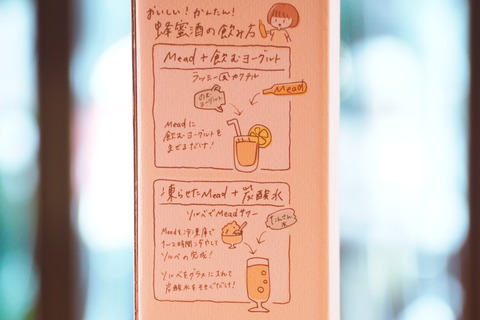 おいしい!かんたん!
蜂蜜酒の飲み方
Mead+飲むヨーグルト
ラッシー風カクテル
のむ
ヨーグルト
Mead
Meadに
飲むヨーグルトを
まぜるだけ!
凍らせたMead+炭酸水
ソルベでMeadサワー
たんさん
水
Meadを冷凍庫で
時間冷やして
ソルベの完成!
ソルベをグラスに入れて
炭酸水をそそぐだけ!